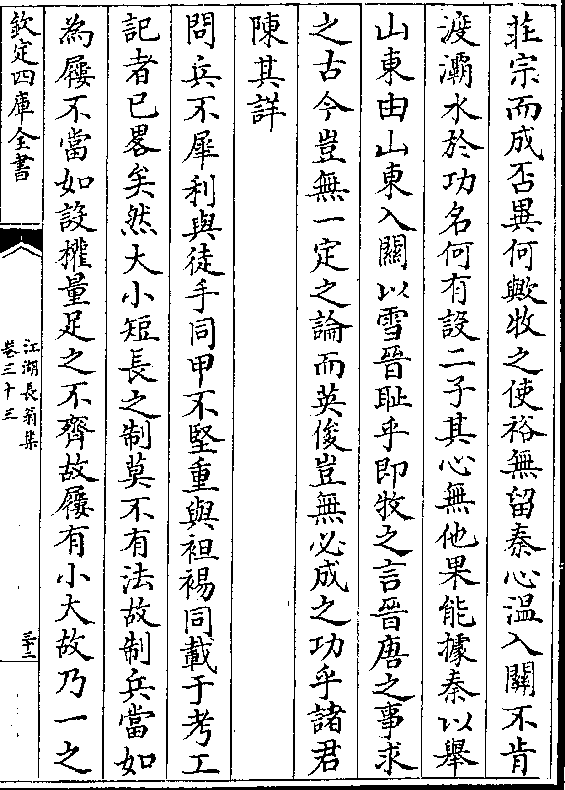 莊宗而成否異何歟牧之使裕無留秦心溫入關不肯
渡灞水於功名何有設二子其心無他果能據秦以舉
山東由山東入關以雪晉耻乎即牧之言晉唐之事求
之古今豈無一定之論而英俊豈無必成之功乎諸君
陳其詳
問兵不犀利與徒手同甲不堅重與袒裼同載于考工
記者已畧矣然大小短長之制莫不有法故制兵當如
為屨不當如設權量足之不齊故屨有小大故乃一之
欽定四庫全書
江湖長翁集
卷三十三
三十二